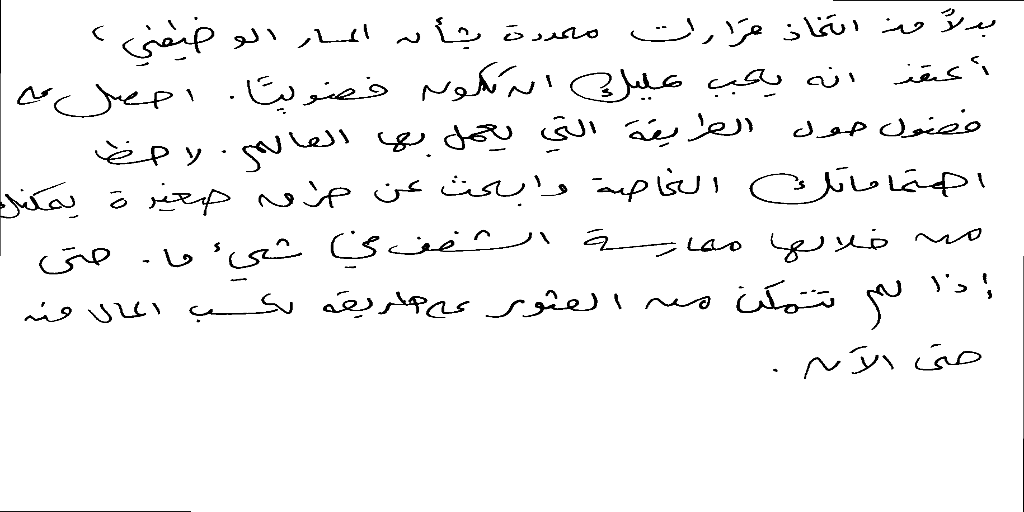 بدلاً من اتخاذ قرارات محددة بشأن المسار الوظيفي،
أعتقد انه يجب عليك ان تكون فضوليًا. احصل على
فضول حول الطريقة التي يعمل بها العالم. لاحظ
اهتماماتك الخاصة وابحث عن طرق صغيرة يمكنك
من خلالها ممارسة الشغف في شيء ما. حتى
إذا لم تتمكن من العثور على طريقه لكسب المال منه
حتى الآن.